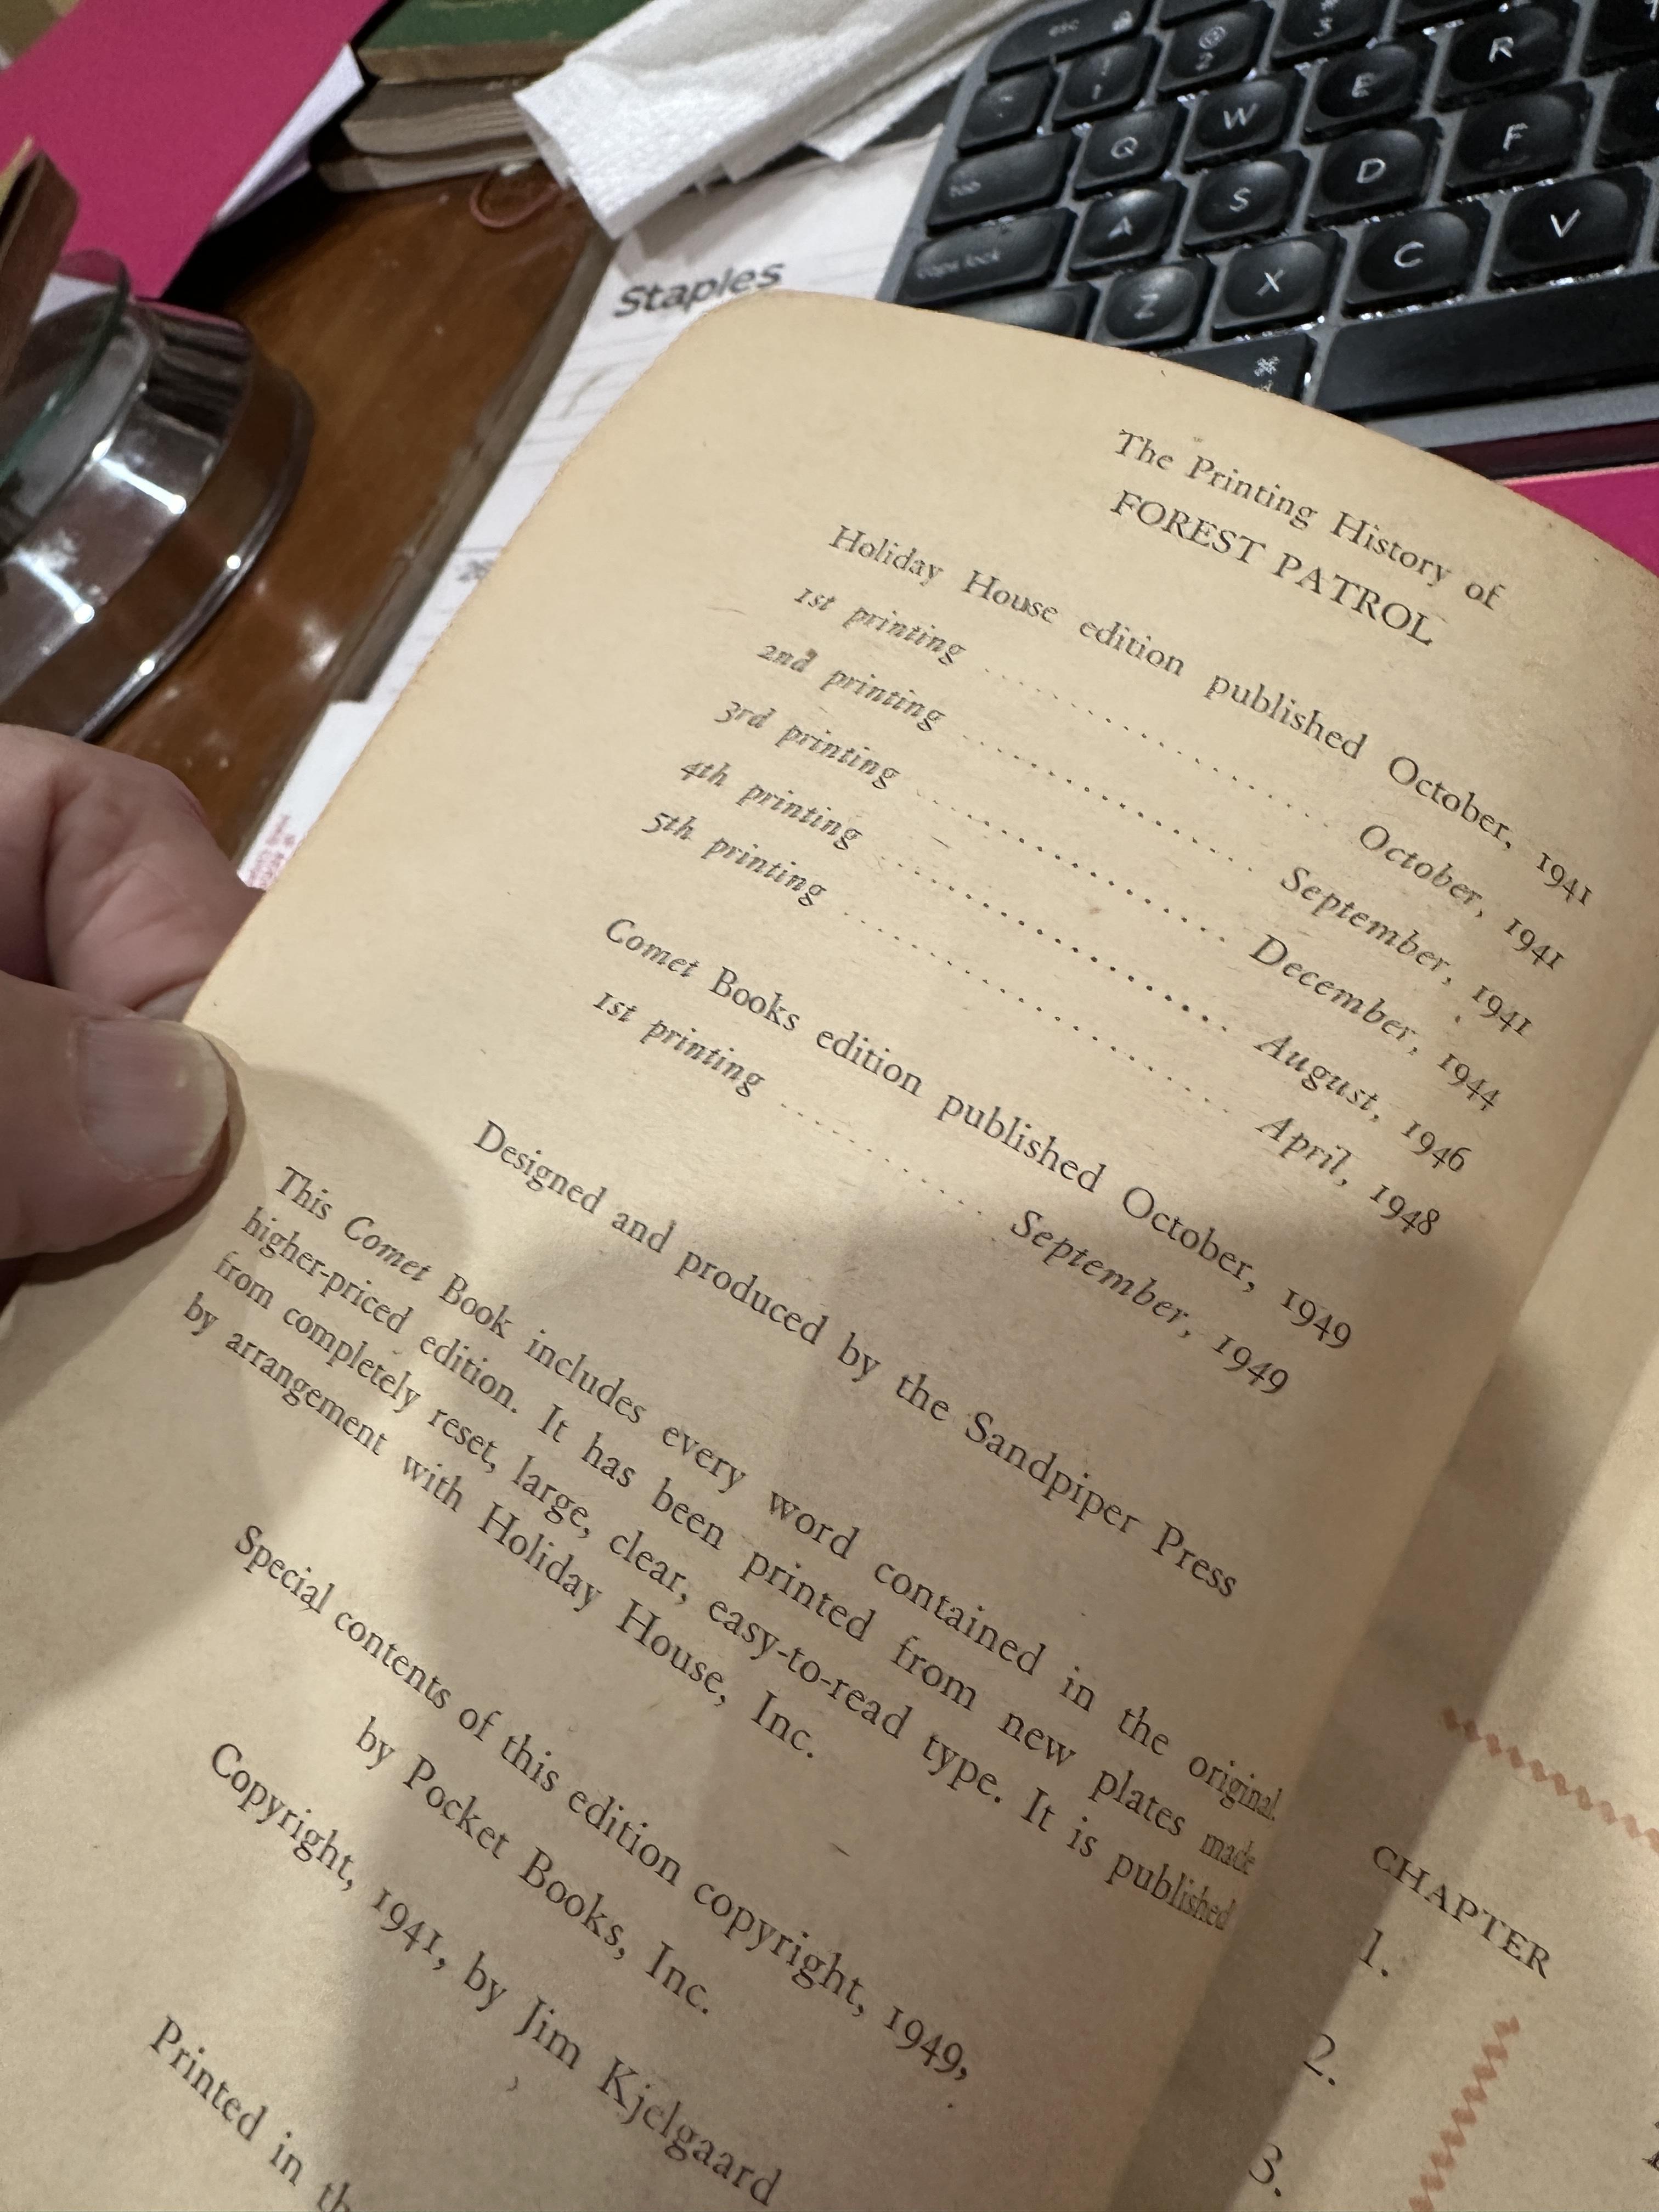 esc
Q
W
E
R
A
S
D
F
caps lock
Z
X
C
V
Staples
The Printing History of
FOREST PATROL
Holiday House edition published October, 1941
1st printing .......... October, 1941
2nd printing .......... September, 1941
3rd printing .......... December, 1944
4th printing .......... August, 1946
5th printing .......... April, 1948
Comet Books edition published October, 1949
1st printing .......... September, 1949
Designed and produced by the Sandpiper Press
This Comet Book includes every word contained in the original,
higher-priced edition. It has been printed from new plates made
from completely reset, large, clear, easy-to-read type. It is published
by arrangement with Holiday House, Inc.
Special contents of this edition copyright, 1949,
by Pocket Books, Inc.
Copyright, 1941, by Jim Kjelgaard
Printed in th
CHAPTER
1.
2.
3.